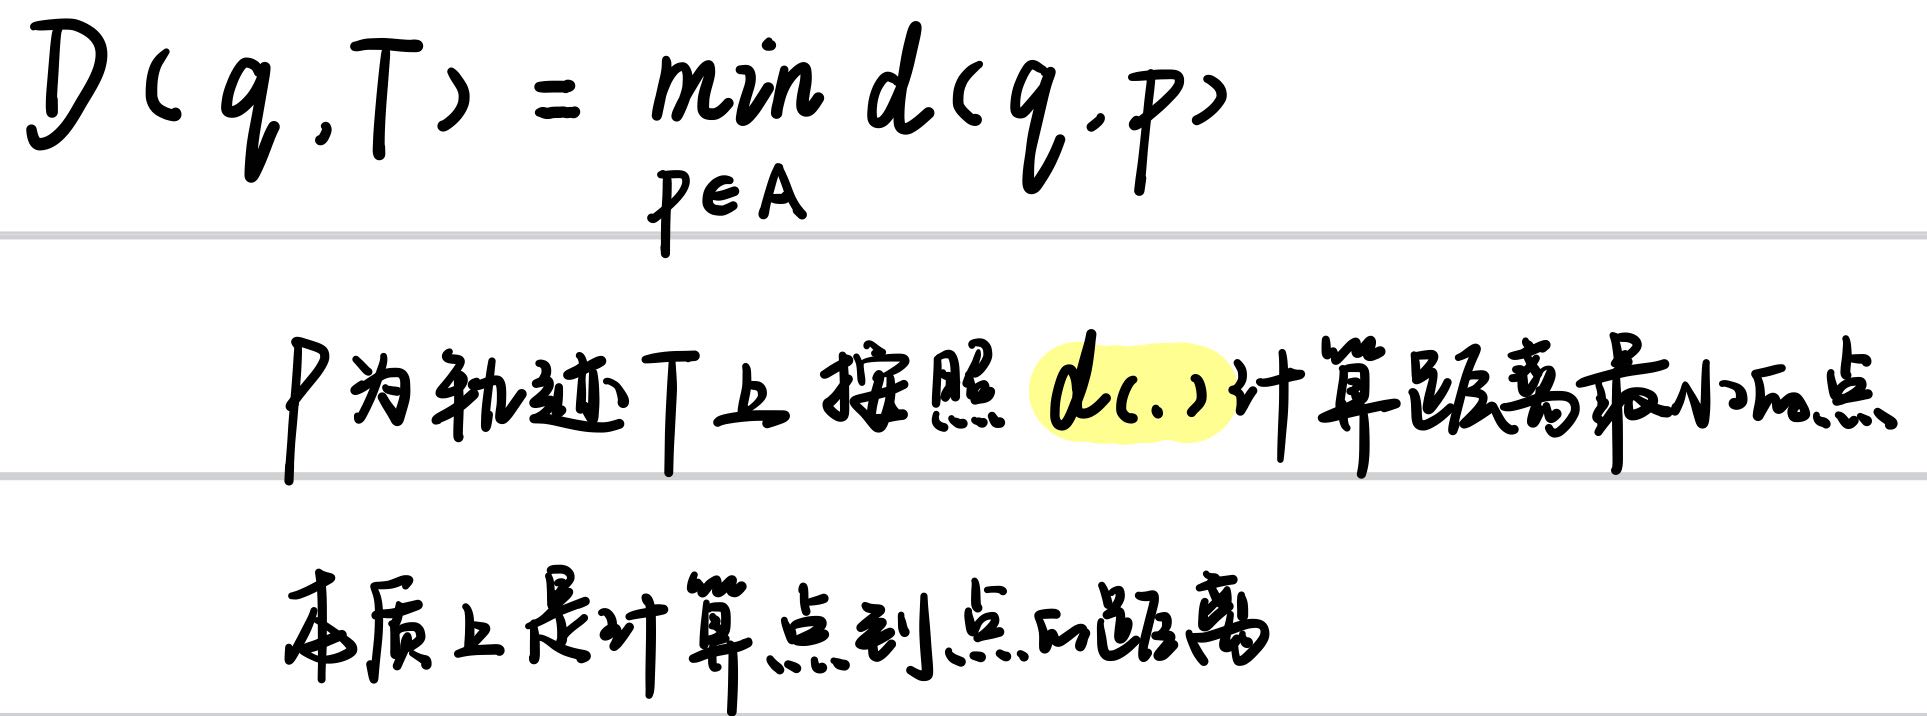 D(q,T) = min d(q,p)
p∈A
P为轨迹T上按照d(.)计算距离最小的点
本质上是计算点到点的距离